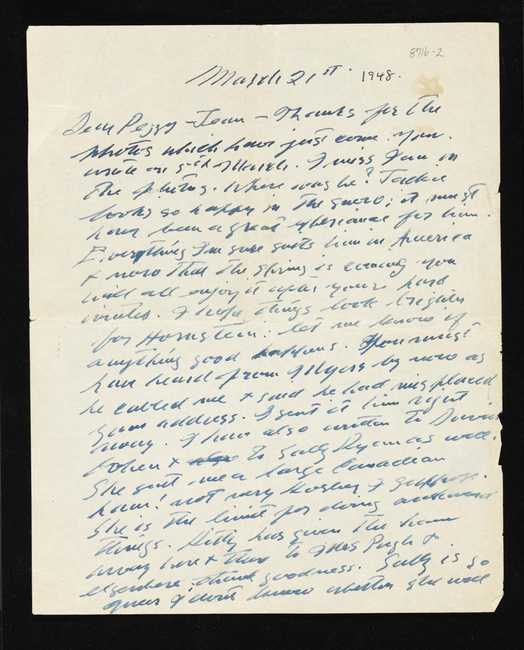 8716-2
March 21st. 1948.
Dear Peggy-Jean - Thanks for the
photos which have just come. You
wrote on 9th of March. I miss Ian in
the photos. Where was he? Jackie
looks so happy in the snow; it must
have been a great experience for him.
Everything I'm sure suits him in America
& now that the spring is coming you
will all enjoy it after your hard
winter. I hope things look brighter
for Hornstein: let me know if
anything good happens. You must
have heard from Myers by now as
he cabled me & said he had misplaced
your address. I sent it him right
away. I have also written to
Cohen & to Sally Ryan as well.
She sent me a large Canadian
ham! not very kosher I suppose.
She is the limit for doing awkward
things. Kitty has given the ham
away here & there to Mrs Pugh &
elsewhere, thank goodness. Sally is so
queer I don't know whether she will